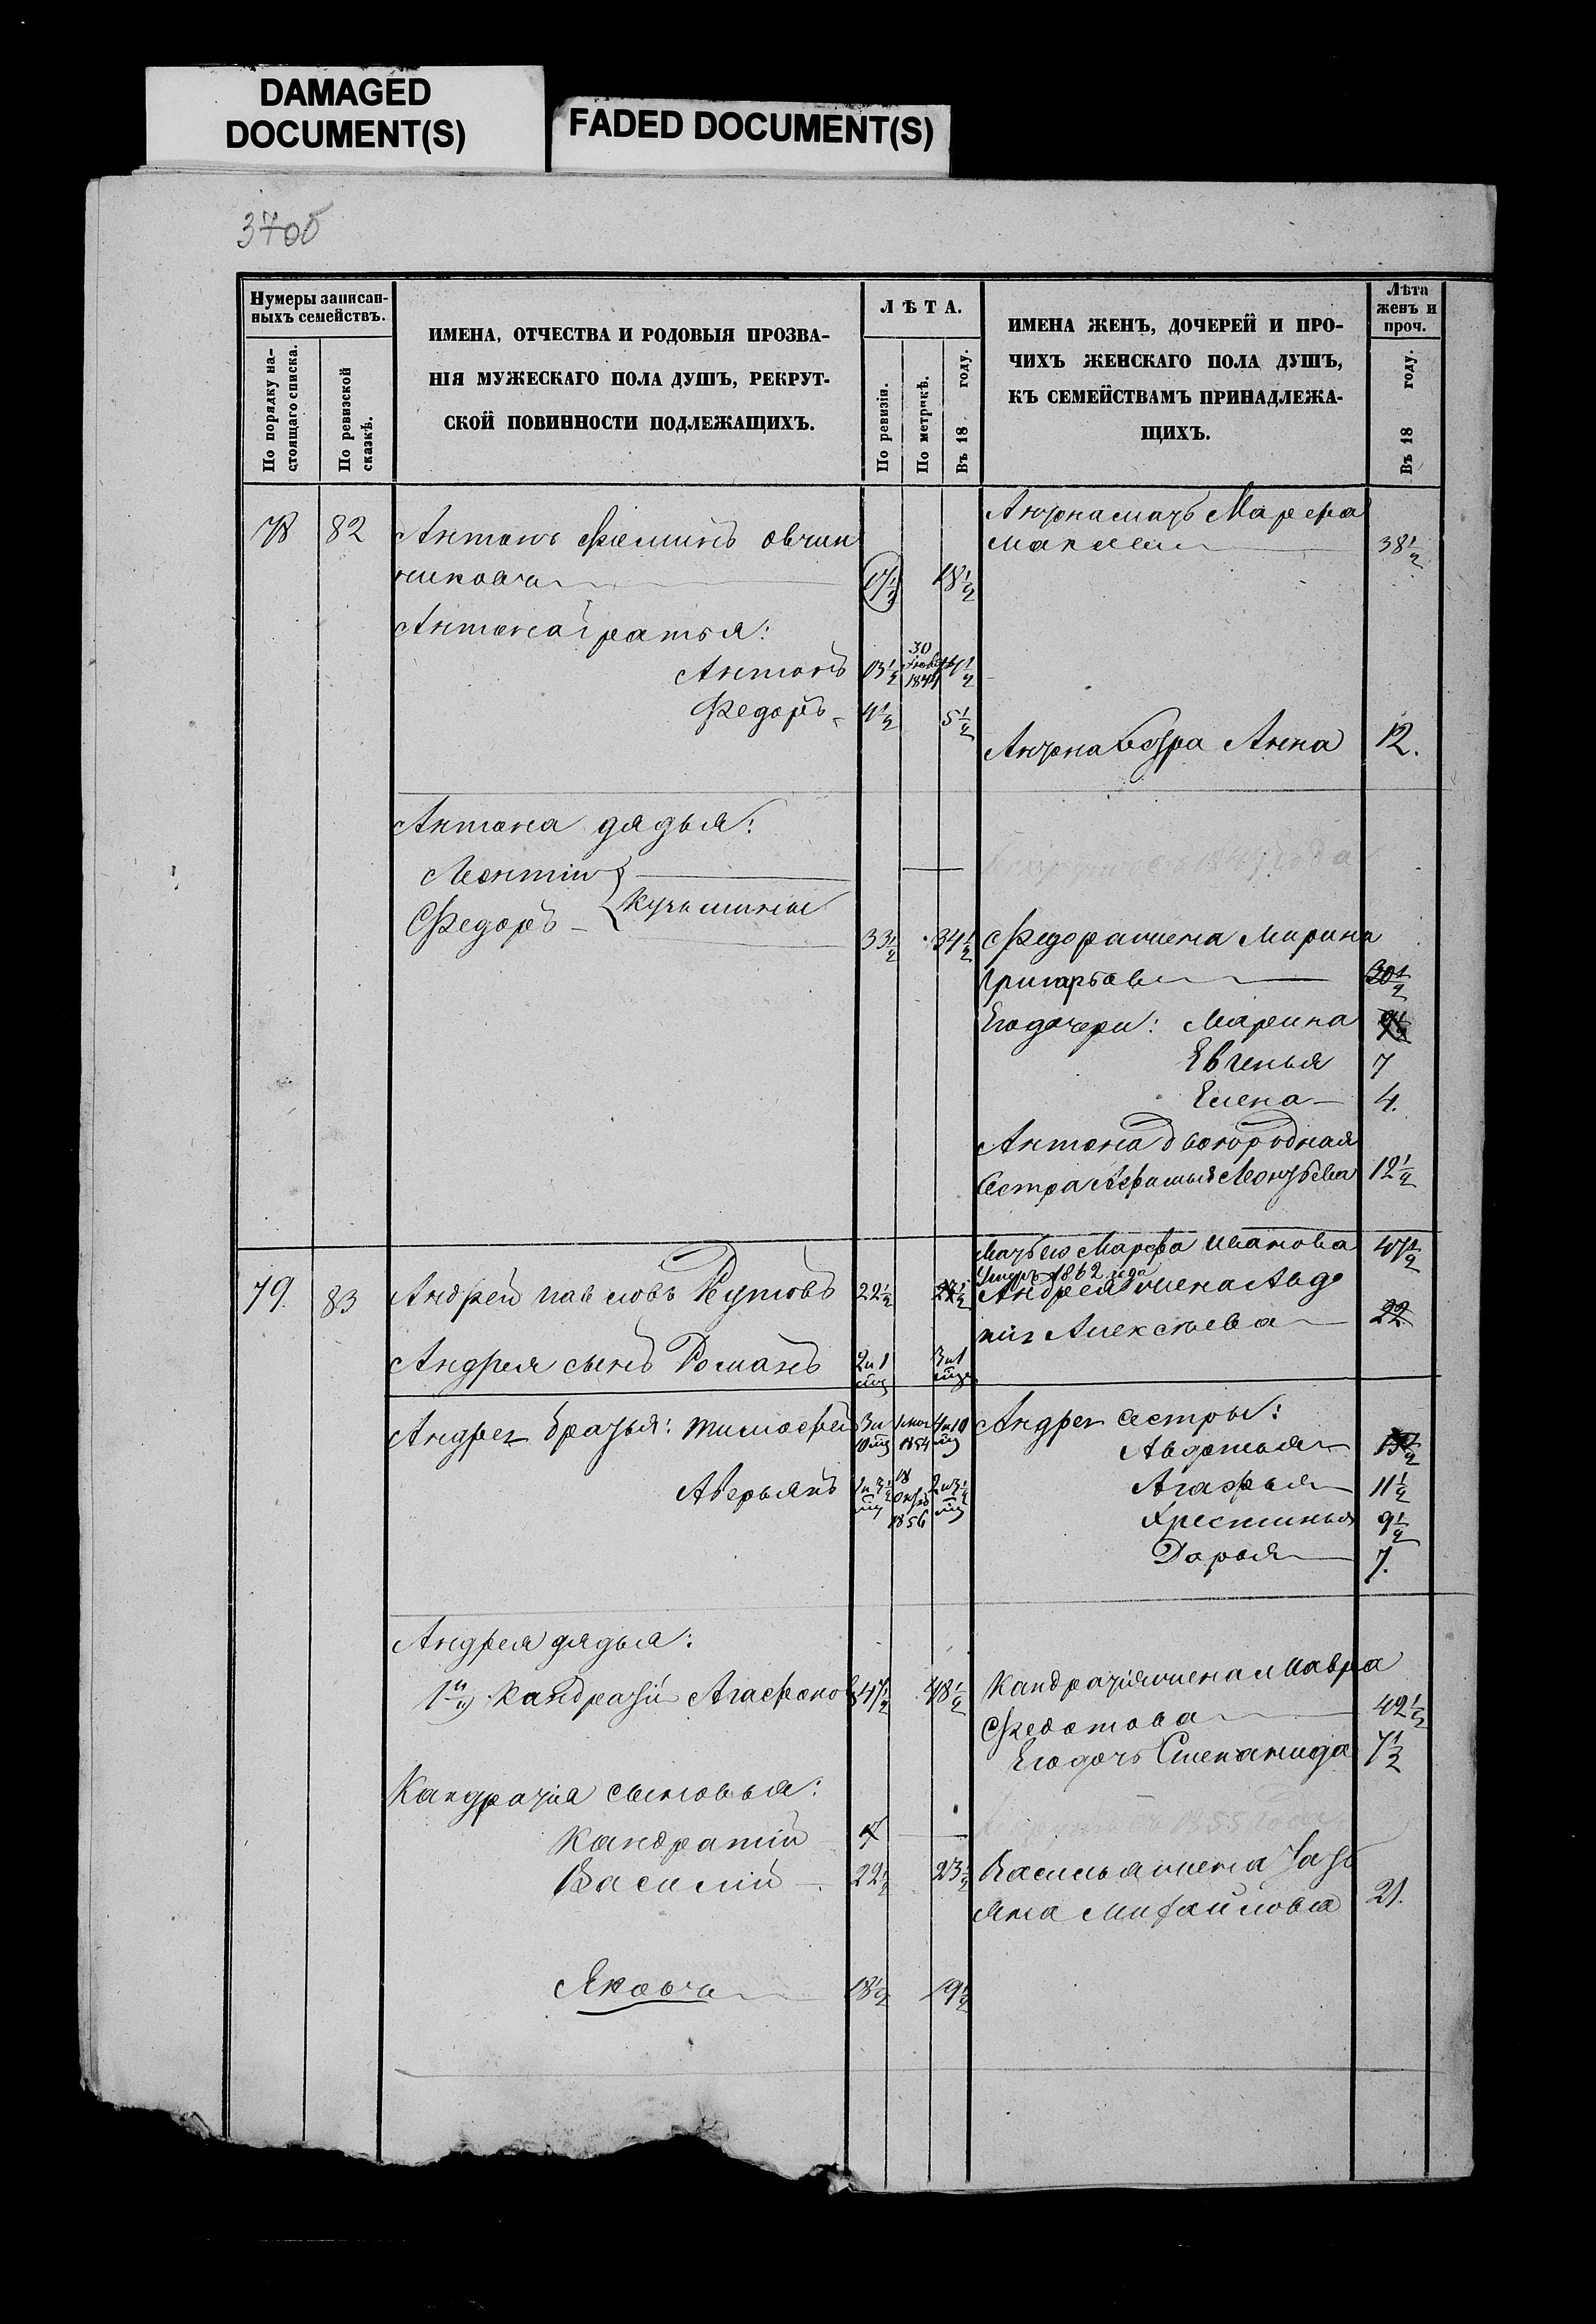 DAMAGED
DOCUMENT(S)
FADED DOCUMENT(S)
370б
Нумеры записан-
ныхъ семействъ.
По порядку на-
стоящаго списка.
По ревизской
сказкѣ.
ИМЕНА, ОТЧЕСТВА И РОДОВЫЯ ПРОЗВА-
НІЯ МУЖЕСКАГО ПОЛА ДУШЪ, РЕКРУТ-
СКОЙ ПОВИННОСТИ ПОДЛЕЖАЩИХЪ.
ЛѢТА.
По ревизіи.
По метрикѣ.
Въ 18 году.
ИМЕНА ЖЕНЪ, ДОЧЕРЕЙ И ПРО-
ЧИХЪ ЖЕНСКАГО ПОЛА ДУШЪ,
КЪ СЕМЕЙСТВАМЪ ПРИНАДЛЕЖА-
ЩИХЪ.
Лѣта
женъ и
проч.
Въ 18 году.
78 82 Антонъ Фоминъ овчин
никовъ 17½ 18½
Антона мать Марфа
38½
Антона братья:
Антонъ 13½ 30 1844
Федоръ 4½ 5½
Антона Сестра Анна 12.
Антона дядья:
Леонтій
Федоръ Кузьмины
33½ 34½ Федора жена Марина
Григорьева 30½
Его дочери: Марина
Евгенья 7
Елена 4.
Антона двоюродная
Сестра Леонтьева 12½
Мать его Марфа Иванова 47½
1862 года
79. 83 Андрей Павловъ 22½
Андрея жена Авдо
тія Алексѣева 22
Андрея сынъ Романъ 2 и 1 мѣс 3 и 1 мѣс
Андрея братья: Тимофей 3 и 10 мѣс 1854 4 и 10 мѣс
Аверьянъ 18 Октяб 1856
Андрея сестры:
Авдотья
Агафья 11½
Хрестинья 9½
Дарья 7.
Андрея дядья:
1й Кандратій Агафоновъ 47½ 48½
Кандратія жена Мавра
Федотова 42½
Его дочь Степанида 7½
Кандратія сыновья:
Кандратій
1855 года
Василій 22½ 23½
Василья жена Тать
яна Михайлова 21.
Яковъ 18½ 19½